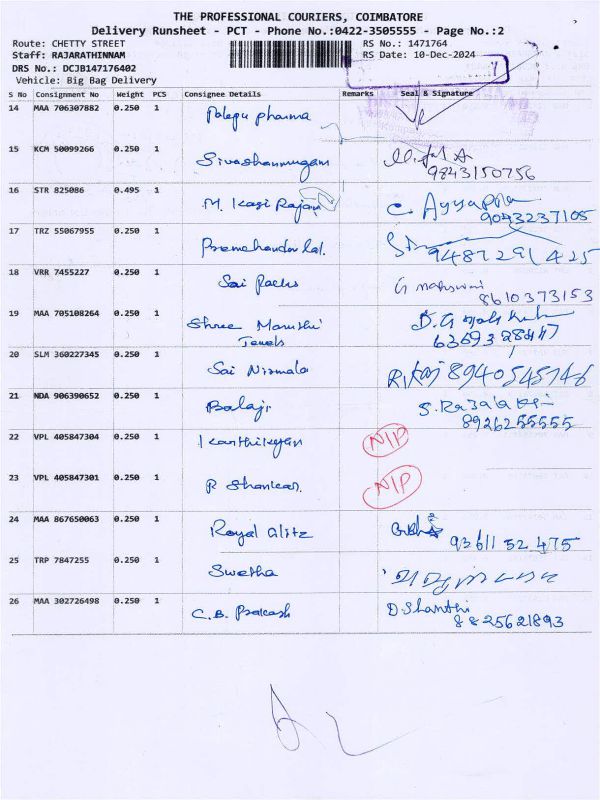 THE PROFESSIONAL COURIERS, COIMBATORE
Delivery Runsheet - PCT - Phone No.:0422-3505555 - Page No.:2
Route: CHETTY STREET RS No.: 1471764
Staff: RAJARATHINNAM RS Date: 10-Dec-2024
DRS No.: DCJB147176402
Vehicle: Big Bag Delivery
S No Consignment No Weight PCS Consignee Details Remarks Seal & Signature
14 MAA 706307882 0.250 1 pharma
15 KCM 50099266 0.250 1 Sivashanmugam
9843150756
16 STR 825086 0.495 1 M. Kasi Rajan C. Ayyappa
9043237105
17 TRZ 55067955 0.250 1 Premchander Lal.
9487291425
18 VRR 7455227 0.250 1 Sai Packs
8610373153
19 MAA 705108264 0.250 1 Shree Maruthi
Jewels
20 SLM 360227345 0.250 1 Sai Nirmala 8940545746
21 NDA 906390652 0.250 1 Balaji
8926255555
22 VPL 405847304 0.250 1 N/P
23 VPL 405847301 0.250 1 R Shankar. N/P
24 MAA 867650063 0.250 1 Royal Glitz
9361152475
25 TRP 7847255 0.250 1 Swetha
26 MAA 302726498 0.250 1 C.B. Prakash D Shanthi
8825621893